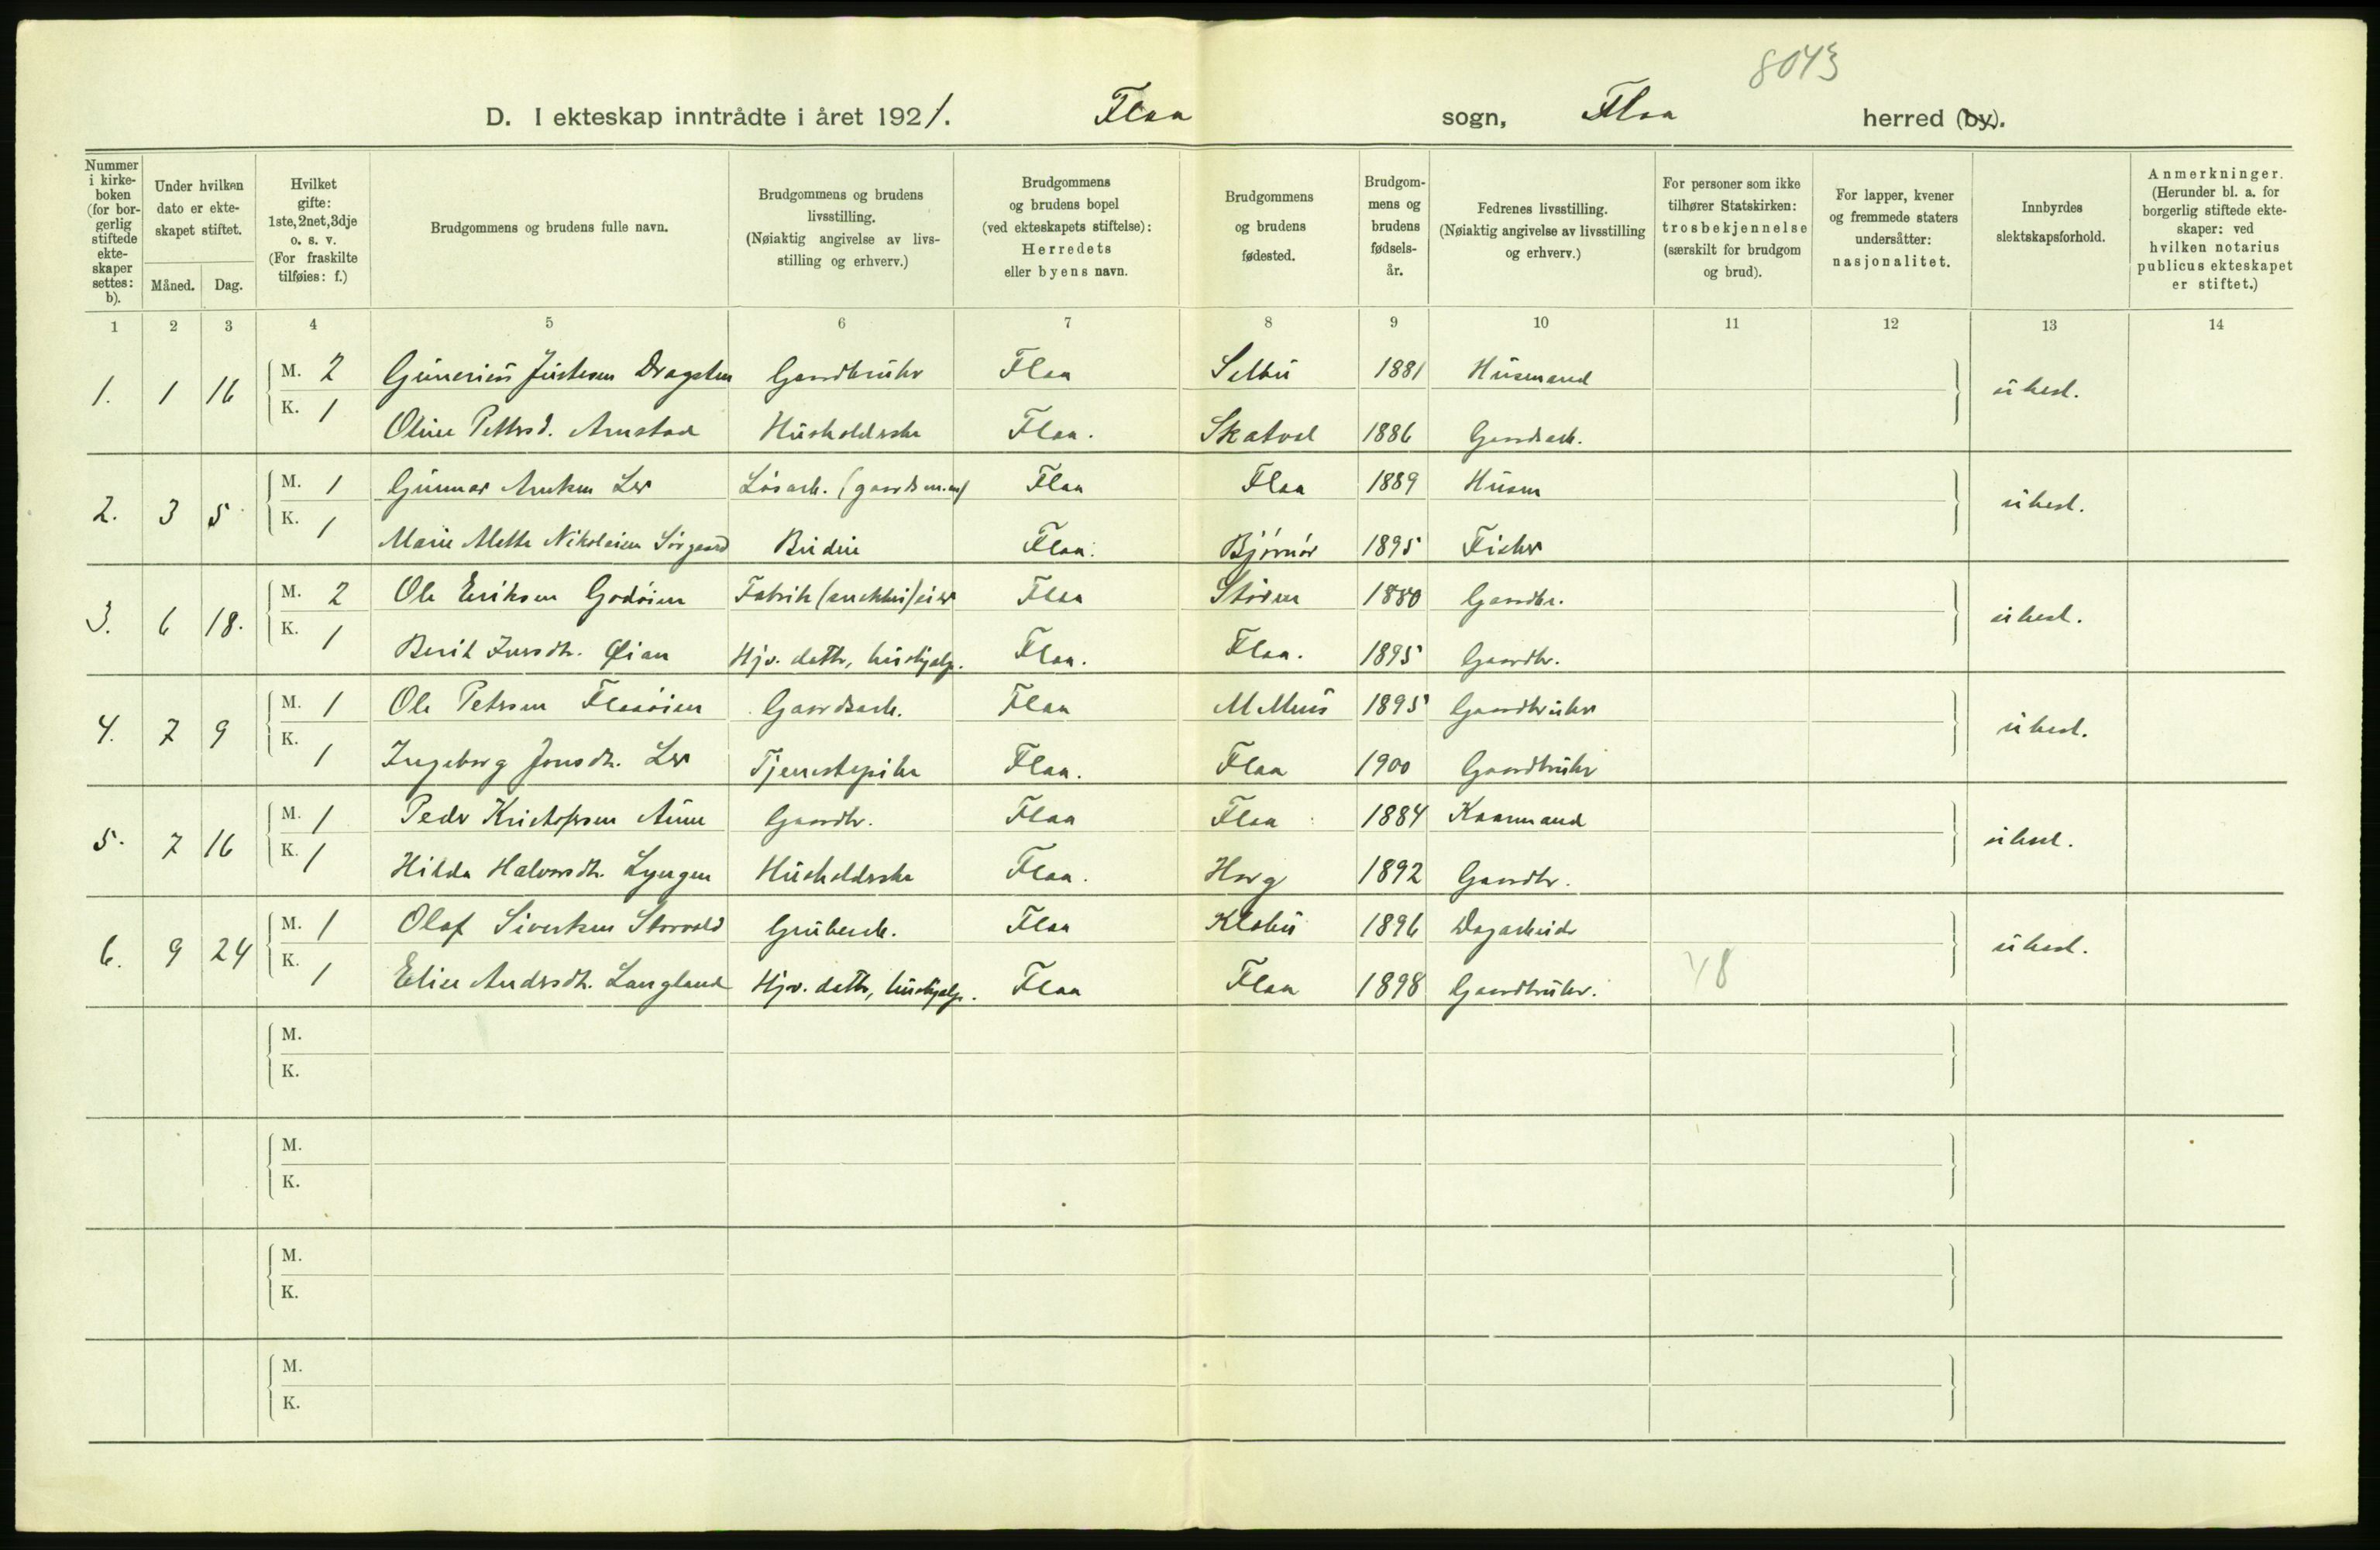 8043
D. I ekteskap inntrådte i året 1921. Flaa sogn, Flaa herred (by).
Nummer i kirke-boken (for bor-gerlig stiftede ekte-skaper settes: b).
Under hvilken dato er ekte-skapet stiftet.
Måned. Dag.
Hvilket gifte: 1ste, 2net, 3dje o. s. v. (For fraskilte tilføies: f.)
Brudgommens og brudens fulle navn.
Brudgommens og brudens livsstilling. (Nøiaktig angivelse av livs-stilling og erhverv.)
Brudgommens og brudens bopel (ved ekteskapets stiftelse): Herredets eller byens navn.
Brudgommens og brudens fødested.
Brudgom-mens og brudens fødsels-år.
Fedrenes livsstilling. (Nøiaktig angivelse av livsstilling og erhverv.)
For personer som ikke tilhører Statskirken: trosbekjennelse (særskilt for brudgom og brud).
For lapper, kvener og fremmede staters undersåtter: nasjonalitet.
Innbyrdes slektskapsforhold.
Anmerkninger. (Herunder bl. a. for borgerlig stiftede ekte-skaper: ved hvilken notarius publicus ekteskapet er stiftet.)
1 2 3 4 5 6 7 8 9 10 11 12 13 14
1. 1 16 M. 2 Gunerius Justesen Dragsten Gaardbruker Flaa Selbu 1881 Husmand ubesl.
K. 1 Oline Pettersd. Arnstad Husholderske Flaa. Skatval 1886 Gaardsarb.
2. 3 5 M. 1 Gunnar Arntsen Ler Løsarb. (gaardsm.m) Flaa Flaa 1889 Husm ubesl.
K. 1 Marie Mette Nikolaisen Sørgaard Budeie Flaa. Bjørnør 1895 Fisker
3. 6 18. M. 2 Ole Eriksen Godøien Fabrik (snekkeri) eier Flaa Støren 1880 Gaardbr. ubesl.
K. 1 Berit Iversdtr. Øian Hjv. datter, hushjælp. Flaa. Flaa. 1895 Gaardbr.
4. 7 9 M. 1 Ole Petersen Flaaøien Gaardsarb. Flaa Melhus 1895 Gaardbruker ubesl.
K. 1 Ingeborg Jonsdtr. Ler Tjenestepike Flaa. Flaa 1900 Gaardbruker
5. 7 16 M. 1 Peder Kristofersen Aune Gaardbr. Flaa Flaa 1884 Kaarmand ubesl.
K. 1 Hilda Halvorsdtr. Lyngen Husholderske Flaa. Horg 1892 Gaardbr.
6. 9 24 M. 1 Olaf Sivertsen Storvold Grubearb. Flaa Klæbu 1896 Dagarbeider ubesl.
K. 1 Elise Andersdtr. Langland Hjv. datter, hushjælp. Flaa Flaa 1898 Gaardbruker. 48
M.
K.
M.
K.
M.
K.
M.
K.